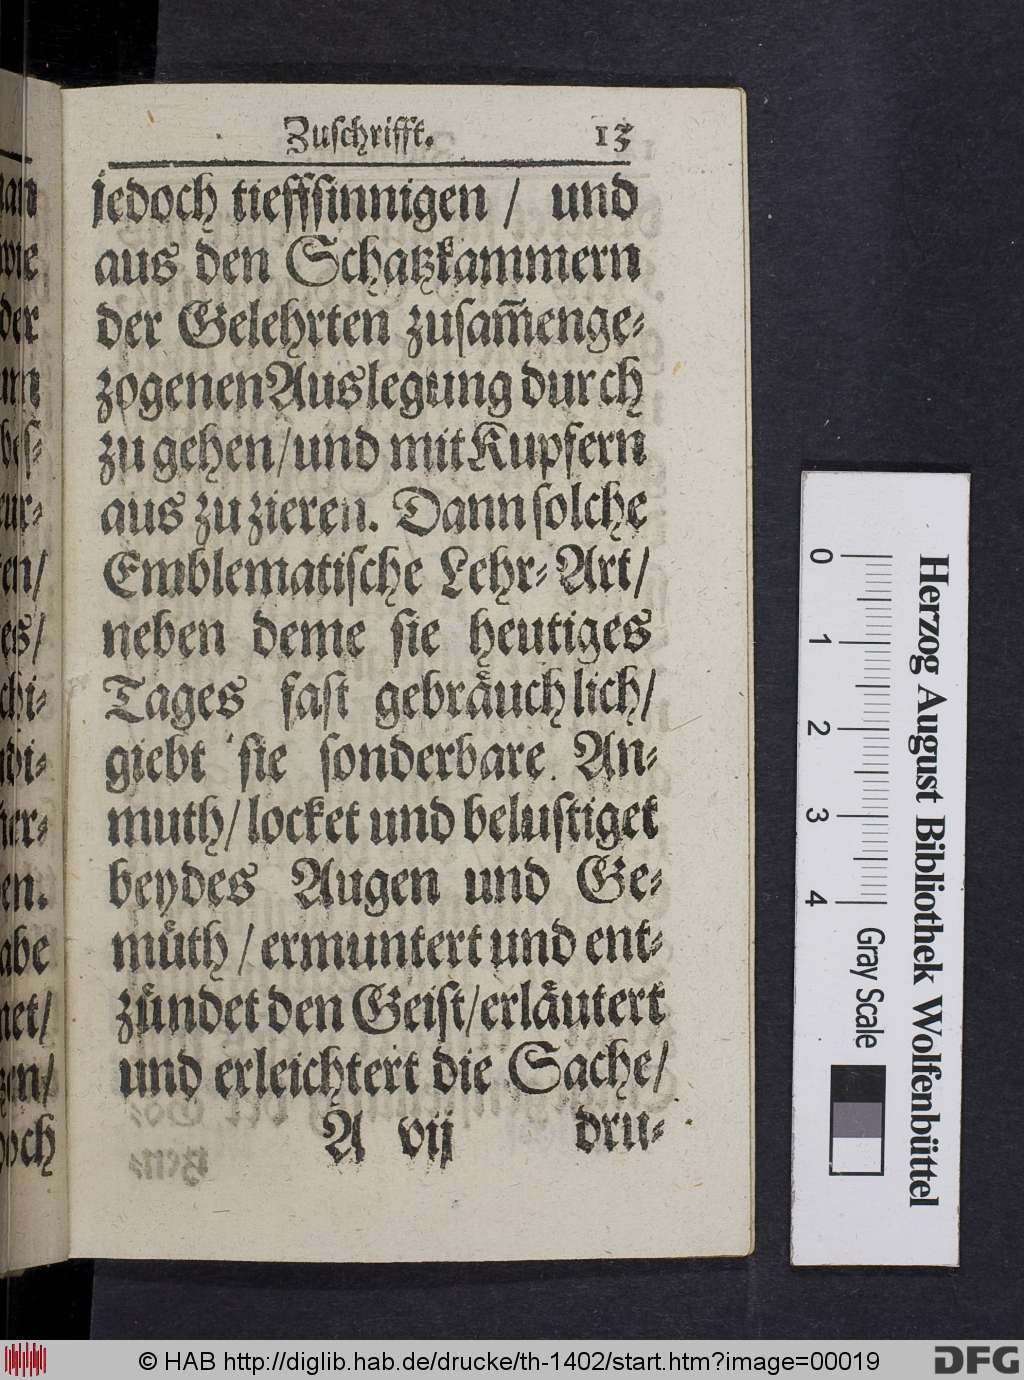 Zuschrifft. 13
jedoch tieffsinnigen / und
aus den Schatzkammern
der Gelehrten zusam̅enge-
zogenen Auslegung durch
zu gehen / und mit Kupfern
aus zu zieren. Dann solche
Emblematische Lehr-Art /
neben deme sie heutiges
Tages fast gebräuchlich /
giebt sie sonderbare An-
muth / locket und belustiget
beydes Augen und Ge-
müth / ermuntert und ent-
zündet den Geist / erläutert
und erleichtert die Sache /
A vij dru-
wie
der
abe
Herzog August Bibliothek Wolfenbüttel
0 1 2 3 4
Gray Scale
© HAB http://diglib.hab.de/drucke/th-1402/start.htm?image=00019
DFG